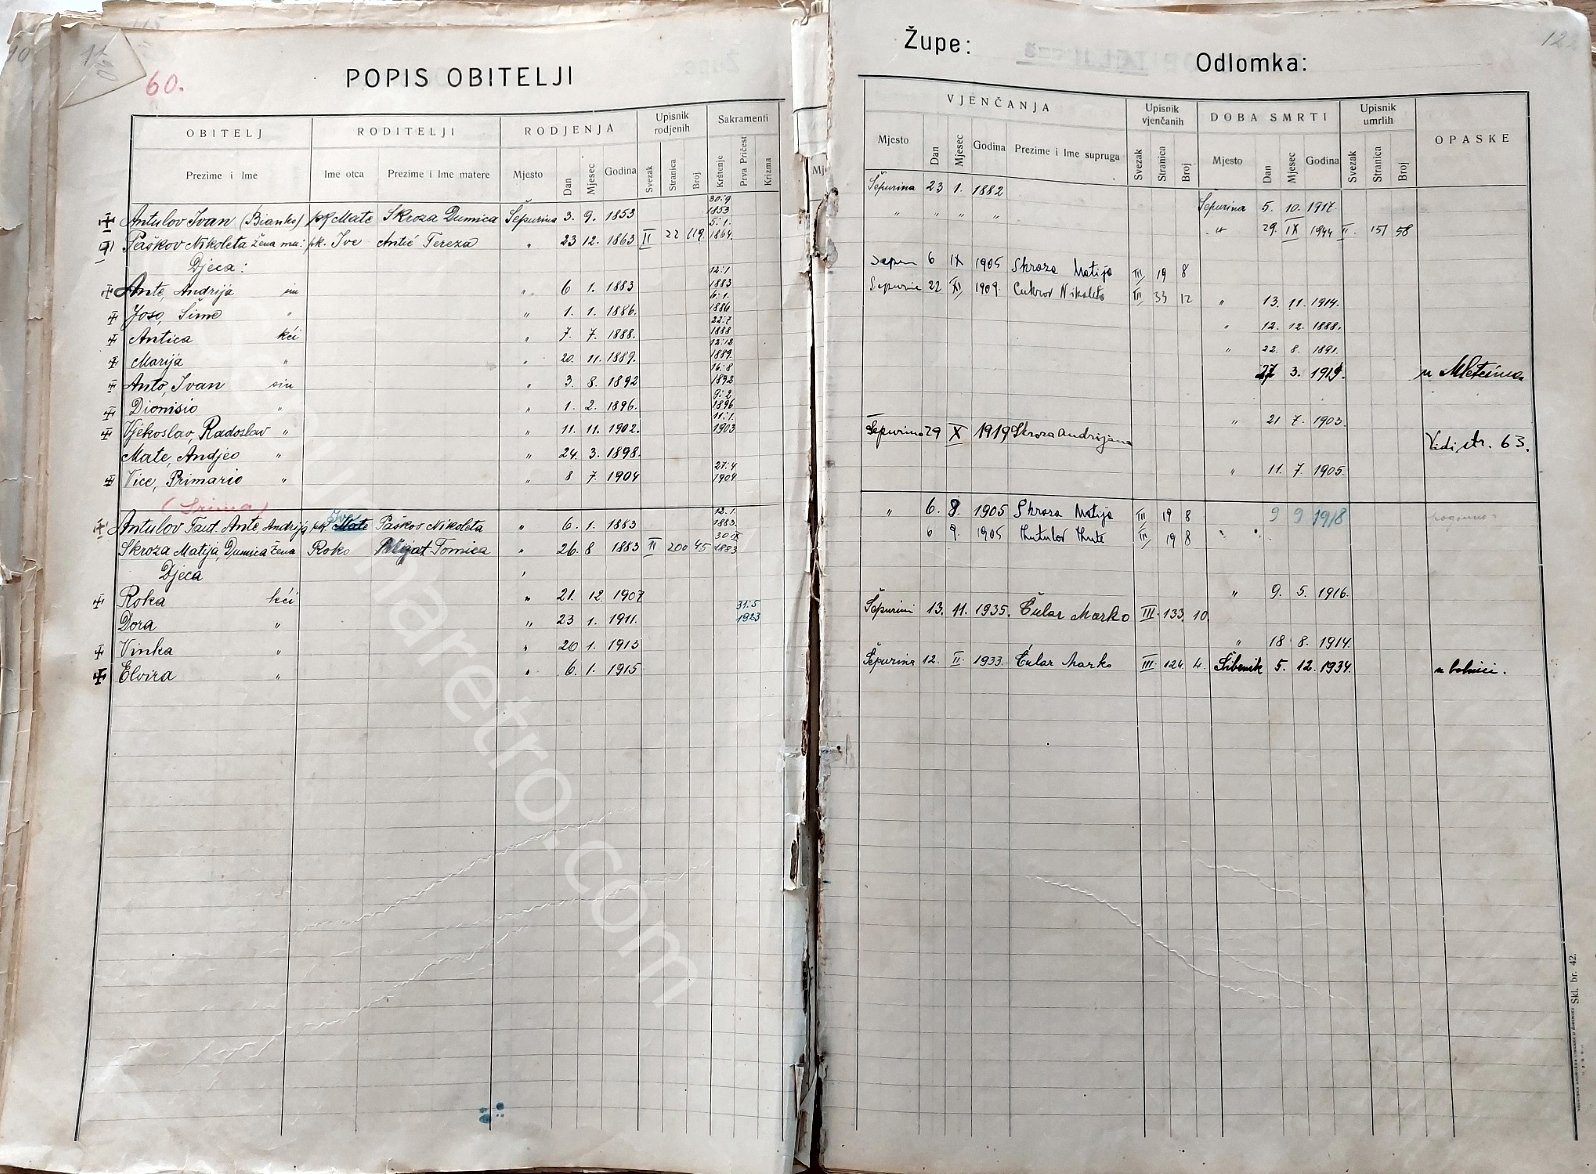 60.
POPIS OBITELJI
Župe:
Odlomka:
OBITELJ RODITELJI RODJENJA Upisnik rodjenih Sakramenti
Prezime i Ime Ime otca Prezime i Ime matere Mjesto Dan Mjesec Godina Svezak Stranica Broj Krštenje Prva Pričest Krizma
VJENČANJA Upisnik vjenčanih DOBA SMRTI Upisnik umrlih OPASKE
Mjesto Dan Mjesec Godina Prezime i Ime supruga Svezak Stranica Broj Mjesto Dan Mjesec Godina Svezak Stranica Broj
Antulov Ivan (Bianko) pk Mate Skroza Dumica Šepurina 3. 9. 1853 30.9. 1853
Paškov Nikoleta žena mu: pk. Ive Antić Tereza " 23 12. 1863 II 22 119 5.1. 1864.
Djeca:
Ante, Andrija sin " 6 1. 1883 12.1. 1883
Joso, Šime " " 1. 1. 1886. 6.1. 1886
Antica kći " 7. 7. 1888. 22.7. 1888
Marija " " 20. 11. 1889. 1889.
Anto, Ivan sin " 3. 8. 1892 16.8 1892
Dionisio " " 1. 2. 1896. 9.2. 1896
Vjekoslav, Radoslav " " 11. 11. 1902. 11.1. 1903
Mate, Andjeo " " 24. 3. 1898.
Vice, Primario " " 8 7. 1904 27.4. 1904
(Srima)
Antulov Faut. Ante Andrija pk Ive Mate Paškov Nikoleta " 6. 1. 1883 12.1. 1883.
Skroza Matija, Dumica žena Roko Tomica " 26. 8 1883 II 200 45 30 IX 1883
Djeca
Roka kći " 21. 12. 1907
Dora " " 23 1. 1911. 31.5 1923
Vinka " " 20 1. 1913
Elvira " " 6. 1. 1915
Šepurina 23 1. 1882 Šepurina 5. 10. 1917.
" " " " " 29. IX 1944 II. 151 58
Sepur 6 IX 1905 Skroza Matija III 19 8
Sepurine 22 XI 1909 Cukrov Nikoleta III 33 12 " 13. 11. 1914.
" 12. 12. 1888.
" 22. 8. 1891.
17 3. 1919. u
" 21 7. 1903.
Šepurina 29 X 1919 Skroza Andrijana Vidi str. 63.
" 11. 7. 1905
" 6. 9 1905 Skroza Matija III 19 8 9 9 1918
6 9. 1905 Antulov Ante III 19 8
" 9. 5. 1916.
Šepurini 13. 11. 1935. Čular Marko III 133. 10.
" 18 8. 1914.
Šepurina 12. II. 1933. Čular Marko III 124 4 Šibenik 5. 12. 1934. u bolnici.
Skl. br. 42.
starinaretro.com